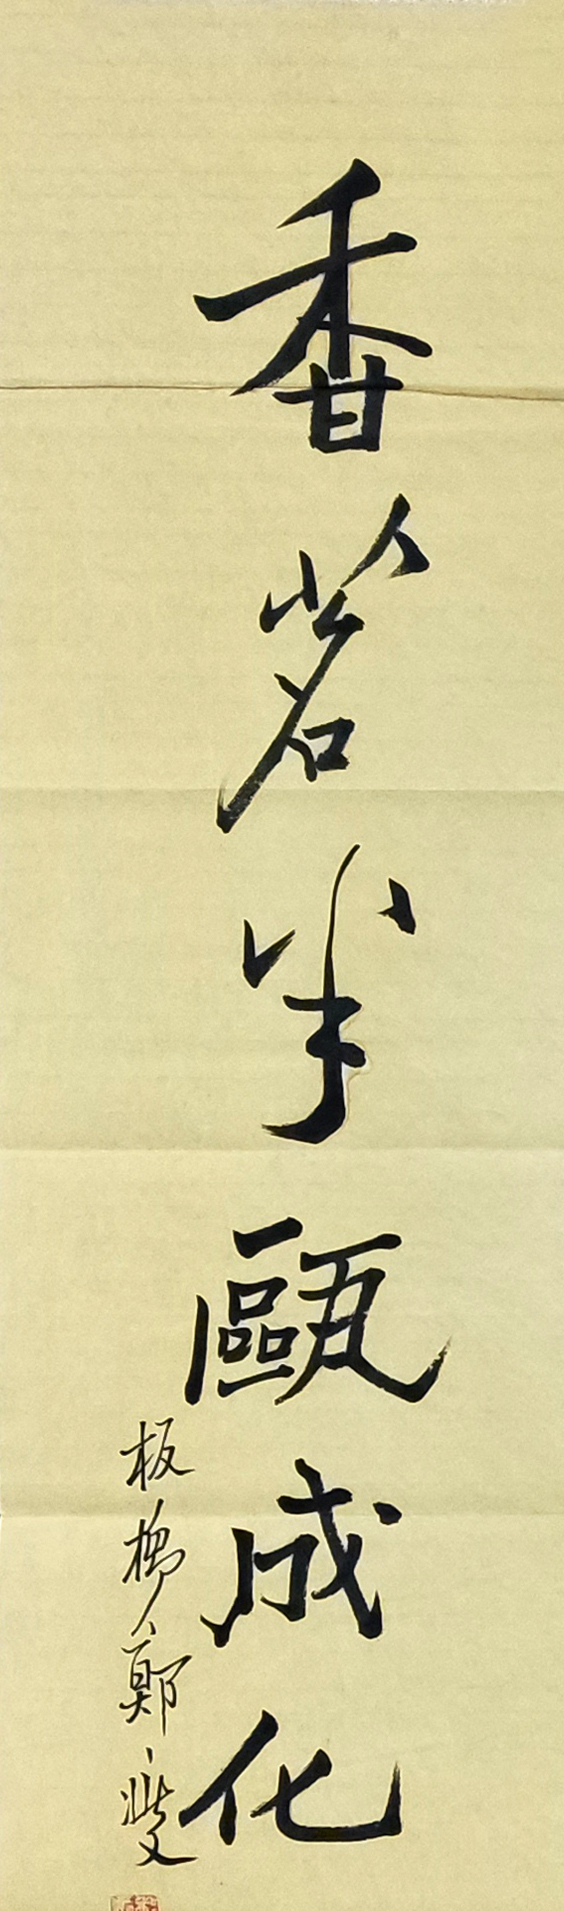 香茗半甌成化
板橋鄭燮